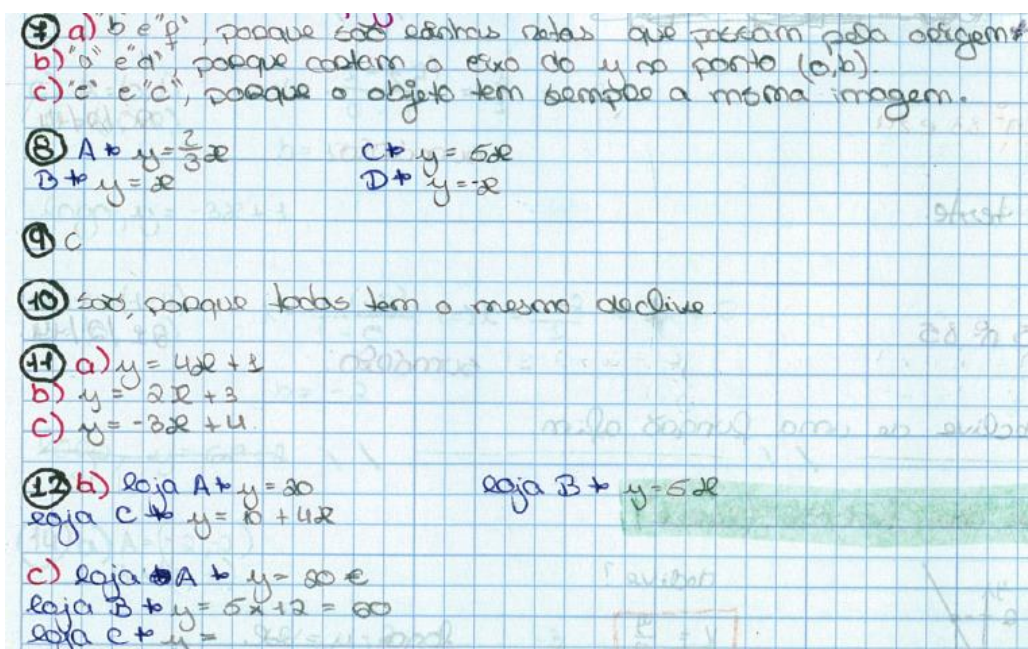 7 a) "b" e "f", porque são linhas retas que passam pela origem
b) "g" e "d", porque cortam o eixo do y no ponto (0,b).
c) "e" e "c", porque o objeto tem sempre a mesma imagem.
8 A → y = 2/3x C → y = 5x
B → y = x D → y = -x
9 C
10 são, porque todas tem o mesmo declive.
11 a) y = 4x + 1
b) y = 2x + 3
c) y = -3x + 4
12 b) loja A → y = 20 loja B → y = 5x
loja C → y = 10 + 4x
c) loja A → y = 20 €
loja B → y = 5 x 12 = 60
loja C → y =